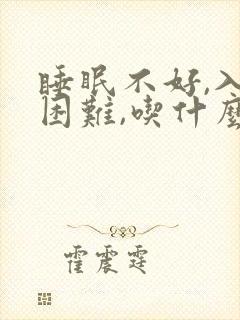 睡眠不好,入
困難,喫什麼
霍震霆